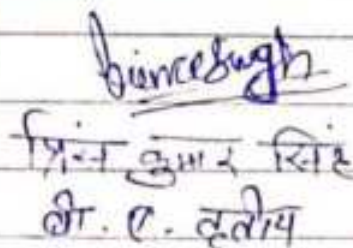 Princesingh
प्रिंस कुमार सिंह
बी. ए. तृतीय